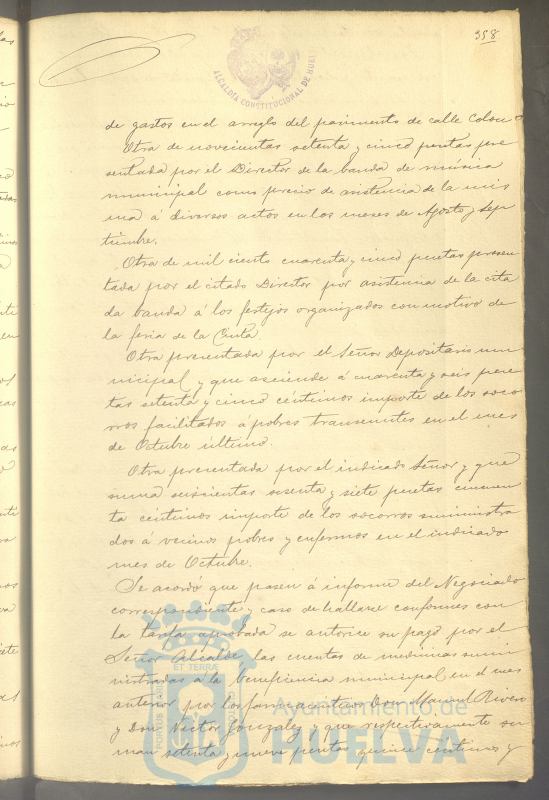 358
ALCALDÍA CONSTITUCIONAL DE HUELVA
de gastos en el arreglo del pavimento de calle Colon
Otra de novecientas setenta y cinco pesetas pre
sentada por el Director de la banda de música
municipal como precio de asistencia de la mis
ma á diversos actos en los meses de Agosto y Sep
tiembre.
Otra de mil ciento cuarenta y cinco pesetas presen
tada por el citado Director por asistencia de la cita
da banda á los festejos organizados con motivo de
la feria de la Cinta.
Otra presentada por el Señor Depositario mu
nicipal y que asciende á cuarenta y seis pese
tas setenta y cinco céntimos importe de los soco
rros facilitados á pobres transeuntes en el mes
de Octubre último.
Otra presentada por el indicado Señor y que
suma seiscientas sesenta y siete pesetas cincuen
ta céntimos importe de los socorros suministra
dos á vecinos pobres y enfermos en el indicado
mes de Octubre.
Se acordó que pasen á informe del Negociado
correspondiente y caso de hallarse conformes con
la tarifa aprobada se autorice su pago por el
Señor Alcalde, las cuentas de medicinas sumi
nistradas á la beneficencia municipal en el mes
anterior por los farmacéuticos Don Manuel Rivero
y Don Victor Gonzalez y que respectivamente su
man setenta y nueve pesetas quince céntimos y
Ayuntamiento de
HUELVA